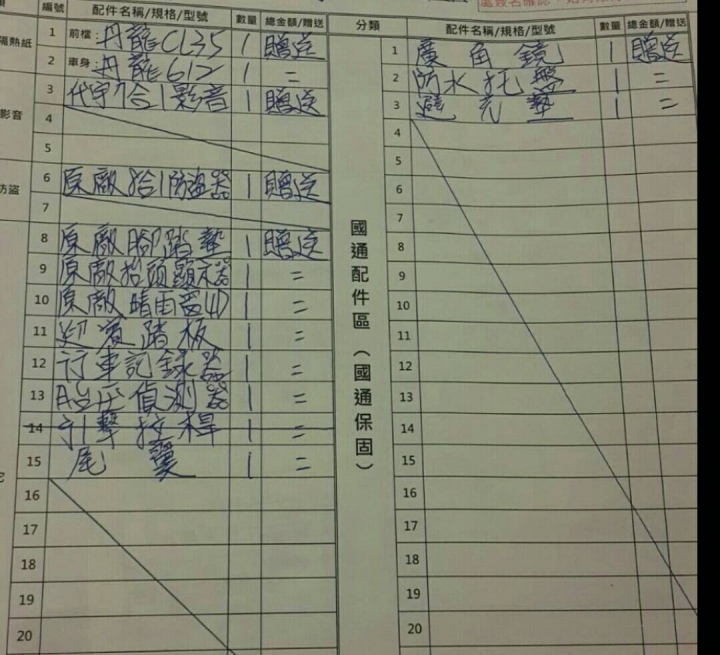 編號 配件名稱/規格/型號 數量 總金額/贈送
隔熱紙 1 前檔：丹龍C135 1 贈送
2 車身：丹龍612 1 =
影音 3 代宇7合1影音 1 贈送
4
5
防盜 6 原廠拾1防盜器 1 贈送
7
8 原廠腳踏墊 1 贈送
9 原廠抬頭顯示器 1 =
10 原廠晴雨窗4D 1 =
11 迎賓踏板 1 =
12 行車記錄器 1 =
13 胎压偵測器 1 =
14 引擎拉桿 1 =
15 尾翼 1 =
16
17
18
19
20
分類 配件名稱/規格/型號 數量 總金額/贈送
國通配件區（國通保固）
1 廣角鏡 1 贈送
2 防水托盤 1 =
3 避光墊 1 =
4
5
6
7
8
9
10
11
12
13
14
15
16
17
18
19
20